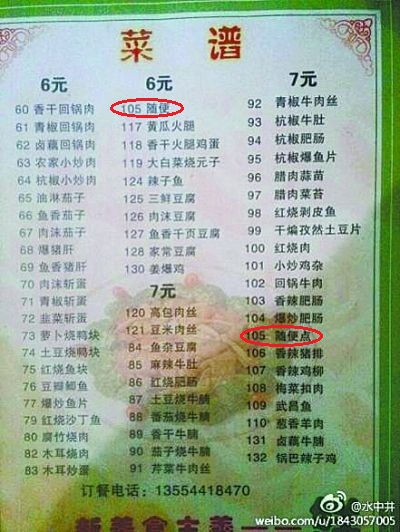 菜谱
6元
60 香干回锅肉
61 青椒回锅肉
62 卤藕回锅肉
63 农家小炒肉
64 杭椒小炒肉
65 油淋茄子
66 鱼香茄子
67 肉沫茄子
68 爆猪肝
69 鱼香猪肝
70 肉沫斩蛋
71 青椒斩蛋
72 韭菜斩蛋
73 萝卜烧鸭块
74 土豆烧鸭块
75 香菇鸡块
76 豆瓣鲫鱼
77 爆炒鱼片
79 红烧沙丁鱼
80 腐竹烧肉
82 木耳烧肉
83 木耳炒蛋
6元
105 随便
117 黄瓜火腿
118 香干火腿鸡蛋
119 大白菜烧元子
124 辣子鱼
125 三鲜豆腐
126 肉沫豆腐
127 鱼香千页豆腐
128 家常豆腐
130 姜爆鸡
7元
120 高包肉丝
121 豆米肉丝
84 鱼杂豆腐
85 麻辣牛肚
86 红烧肥肠
87 土豆烧牛腩
88 番茄烧牛腩
89 香干牛腩
90 香菜牛肉丝
91 芹菜牛肉丝
7元
92 青椒牛肉丝
93 杭椒牛肚
94 杭椒肥肠
95 杭椒爆鱼片
96 腊肉蒜苗
97 腊肉菜苔
98 红烧剥皮鱼
99 干煸孜然土豆片
100 红烧肉
101 小炒鸡杂
102 回锅牛肉
103 香辣肥肠
104 爆炒肥肠
105 随便点
106 香辣猪排
107 香辣鸡柳
108 梅菜扣肉
109 武昌鱼
110 葱香羊肉
131 卤藕牛腩
132 锅巴辣子鸡
订餐电话：13554418470
@水中井
weibo.com/u/1843057005